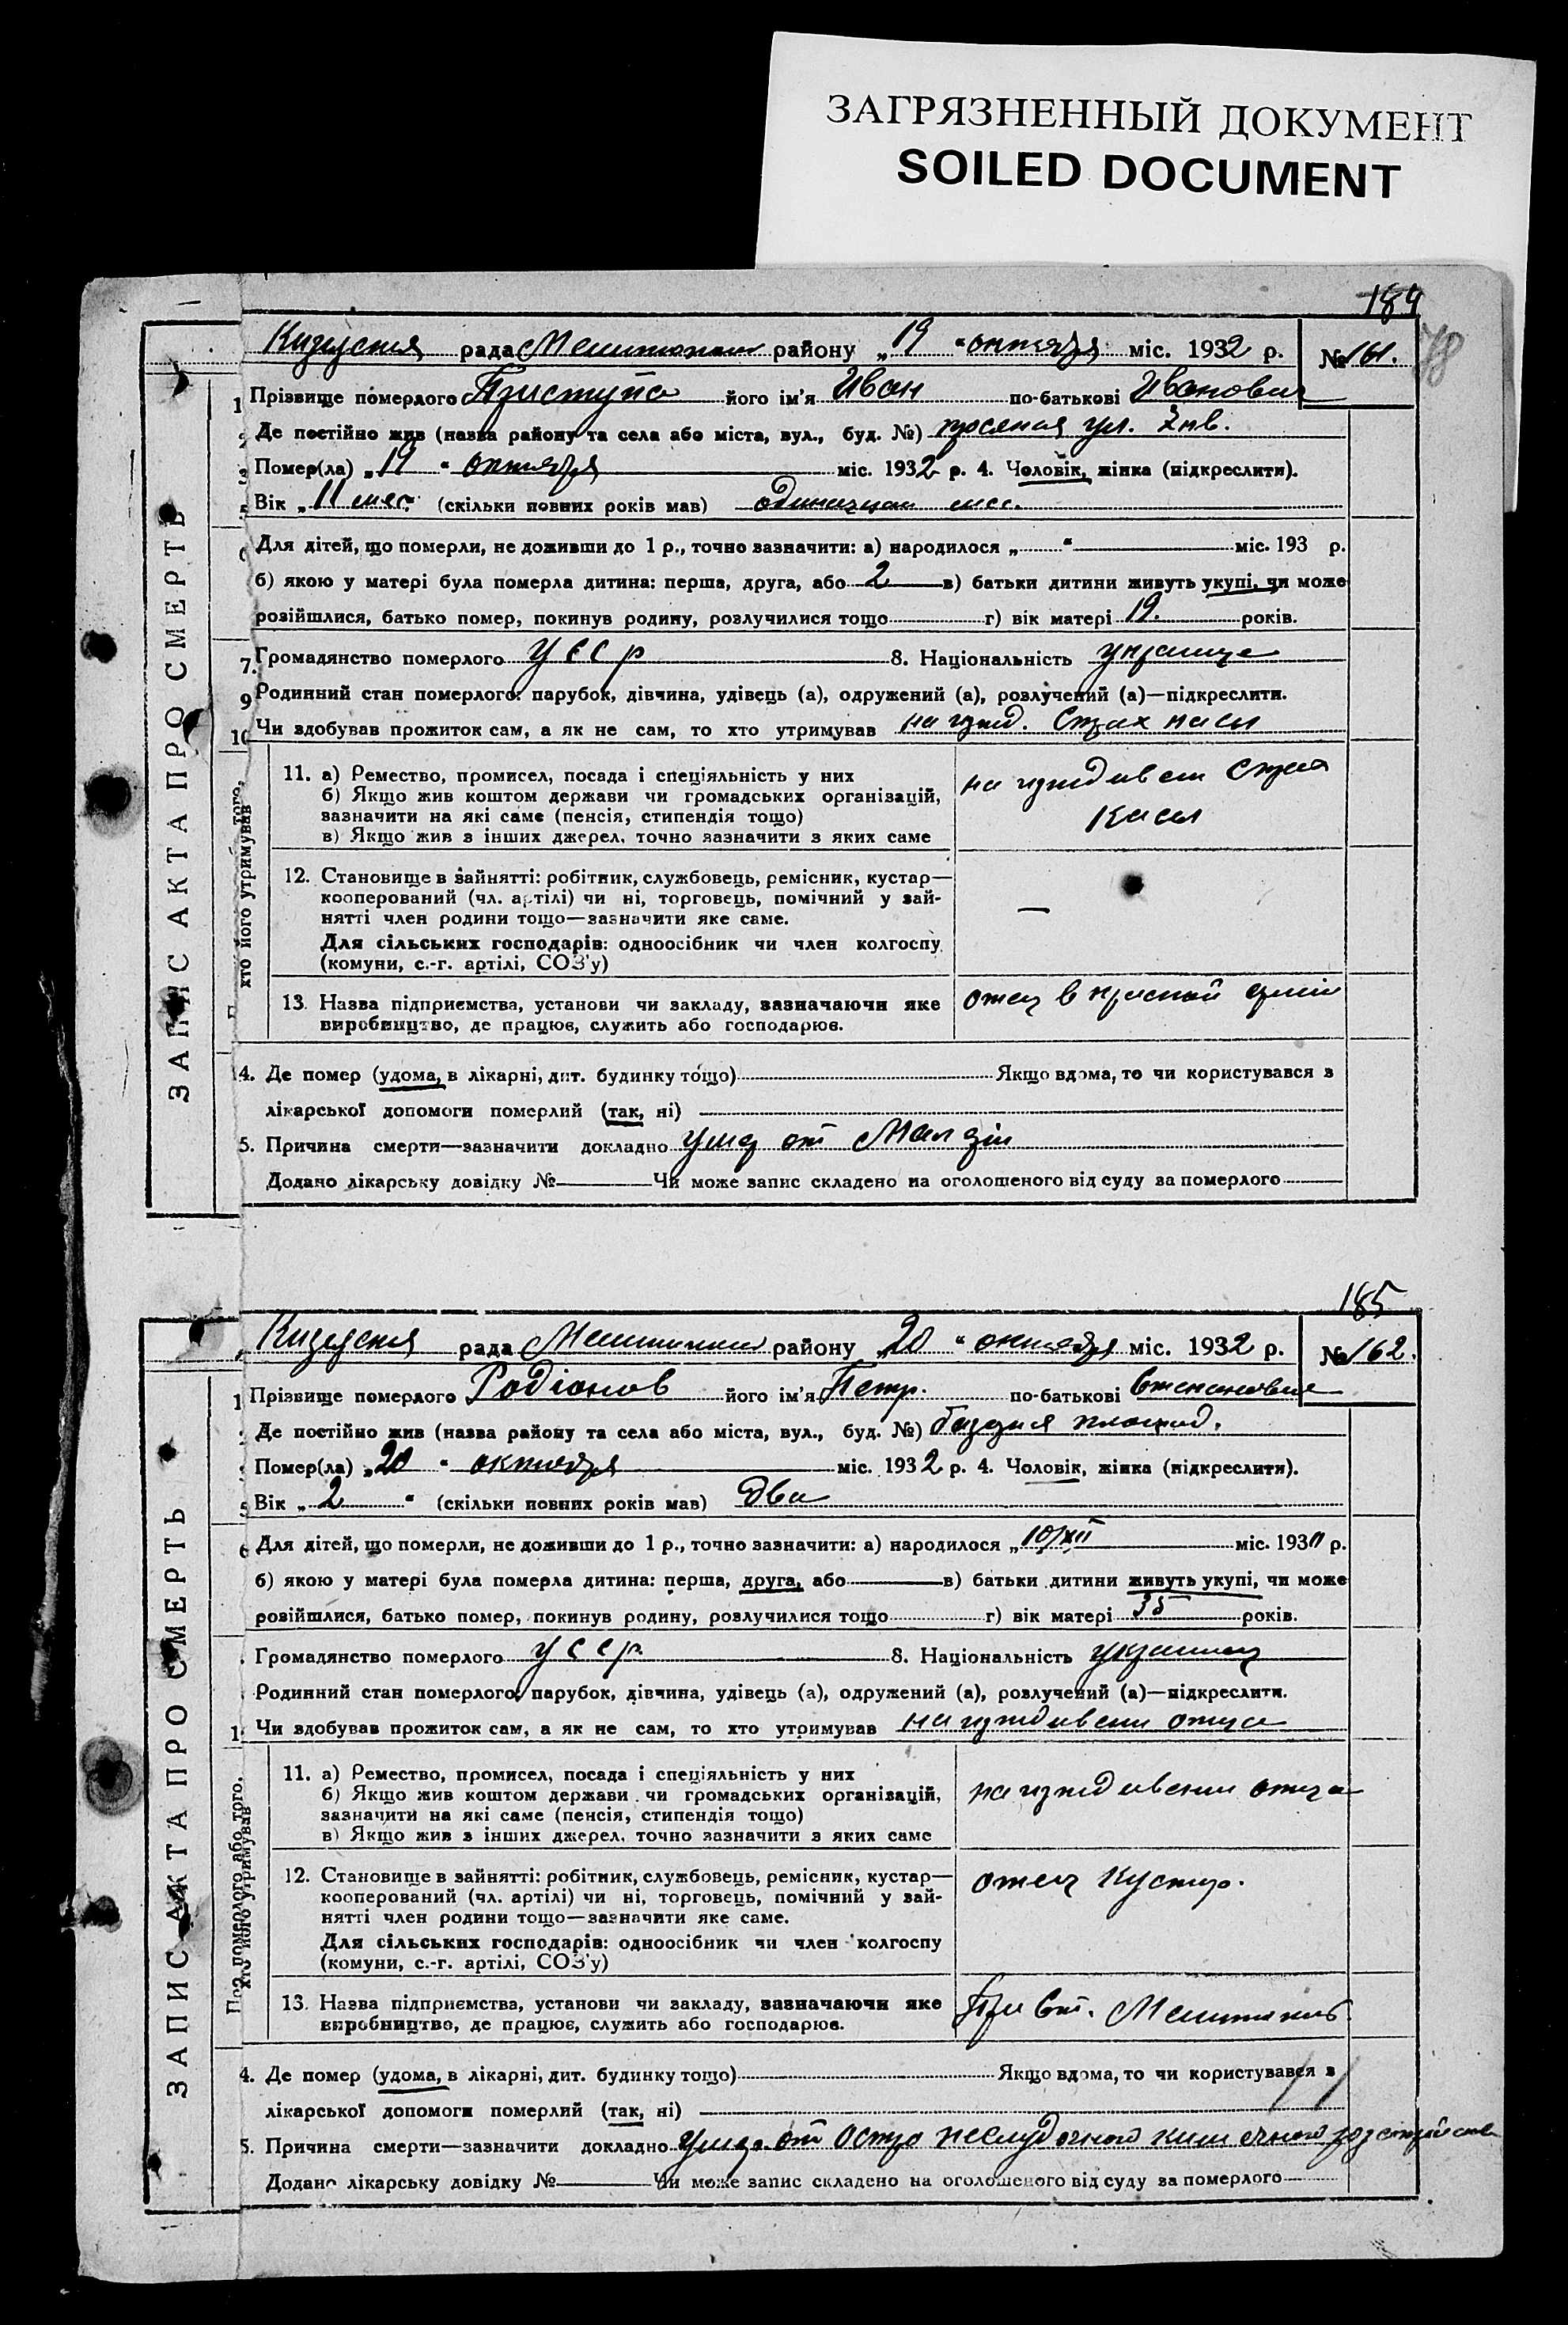 ЗАГРЯЗНЕННЫЙ ДОКУМЕНТ
SOILED DOCUMENT
184
78
ЗАПИС АКТА ПРО СМЕРТЬ
Кизиярская рада Мелитополь району „19“ октября міс. 1932 р. № 161.
1 Прізвище померлого Приступа його ім'я Иван по-батькові Иванович
Де постійно жив (назва району та села або міста, вул., буд. №) ул.
Помер(ла) „ “ октября міс. 1932 р. 4. Чоловік, жінка (підкреслити).
Вік „11 мес. (скільки повних років мав) одинадцать мес.
Для дітей, що померли, не доживши до 1 р., точно зазначити: а) народилося „ “ міс. 193 р.
б) якою у матері була померла дитина: перша, друга, або 2 в) батьки дитини живуть укупі, чи може
розійшлися, батько помер, покинув родину, розлучилися тощо г) вік матері 19. років.
7. Громадянство померлого УССР 8. Національність украинец
9 Родинний стан померлого: парубок, дівчина, удівець (а), одружений (а), розлучений (а)—підкреслити.
10 Чи здобував прожиток сам, а як не сам, то хто утримував на ижд. Страх касы
хто його утримував
11. а) Ремество, промисел, посада і спеціяльність у них
б) Якщо жив коштом держави чи громадських організацій,
зазначити на які саме (пенсія, стипендія тощо)
в) Якщо жив з інших джерел, точно зазначити з яких саме
на иждивении Страх
касы
12. Становище в зайнятті: робітник, службовець, ремісник, кустар—
кооперований (чл. артілі) чи ні, торговець, помічний у зай-
нятті член родини тощо—зазначити яке саме.
Для сільських господарів: одноосібник чи член колгоспу
(комуни, с.-г. артілі, СОЗ'у)
—
13. Назва підприємства, установи чи закладу, зазначаючи яке
виробництво, де працює, служить або господарює.
отец в красной армии
14. Де помер (удома, в лікарні, дит. будинку тощо) Якщо вдома, то чи користувався з
лікарської допомоги померлий (так, ні)
5. Причина смерти—зазначити докладно умер от Малярии
Додано лікарську довідку № Чи може запис складено на оголошеного від суду за померлого
185
ЗАПИС АКТА ПРО СМЕРТЬ
Кизиярская рада Мелитополь району „20“ октября міс. 1932 р. № 162.
1 Прізвище померлого Родіонов його ім'я Петр. по-батькові Степанович
Де постійно жив (назва району та села або міста, вул., буд. №) площад.
Помер(ла) „20“ октября міс. 1932 р. 4. Чоловік, жінка (підкреслити).
5 Вік „2“ (скільки повних років мав) два
6 Для дітей, що померли, не доживши до 1 р., точно зазначити: а) народилося „10/XII міс. 1930 р.
б) якою у матері була померла дитина: перша, друга, або в) батьки дитини живуть укупі, чи може
розійшлися, батько помер, покинув родину, розлучилися тощо г) вік матері 35 років.
Громадянство померлого УССР 8. Національність украинец
Родинний стан померлого: парубок, дівчина, удівець (а), одружений (а), розлучений (а)—підкреслити.
1 Чи здобував прожиток сам, а як не сам, то хто утримував на иждивении отца
Про померлого або того,
хто його утримував
11. а) Ремество, промисел, посада і спеціяльність у них
б) Якщо жив коштом держави чи громадських організацій,
зазначити на які саме (пенсія, стипендія тощо)
в) Якщо жив з інших джерел, точно зазначити з яких саме
на иждивении отца
12. Становище в зайнятті: робітник, службовець, ремісник, кустар—
кооперований (чл. артілі) чи ні, торговець, помічний у зай-
нятті член родини тощо—зазначити яке саме.
Для сільських господарів: одноосібник чи член колгоспу
(комуни, с.-г. артілі, СОЗ'у)
отец Кустар.
13. Назва підприємства, установи чи закладу, зазначаючи яке
виробництво, де працює, служить або господарює.
При ст. Мелитополь
4. Де помер (удома, в лікарні, дит. будинку тощо) Якщо вдома, то чи користувався з
лікарської допомоги померлий (так, ні)
5. Причина смерти—зазначити докладно умер от остро желудочного кишечного расстройства
Додано лікарську довідку № Чи може запис складено на оголошеного від суду за померлого